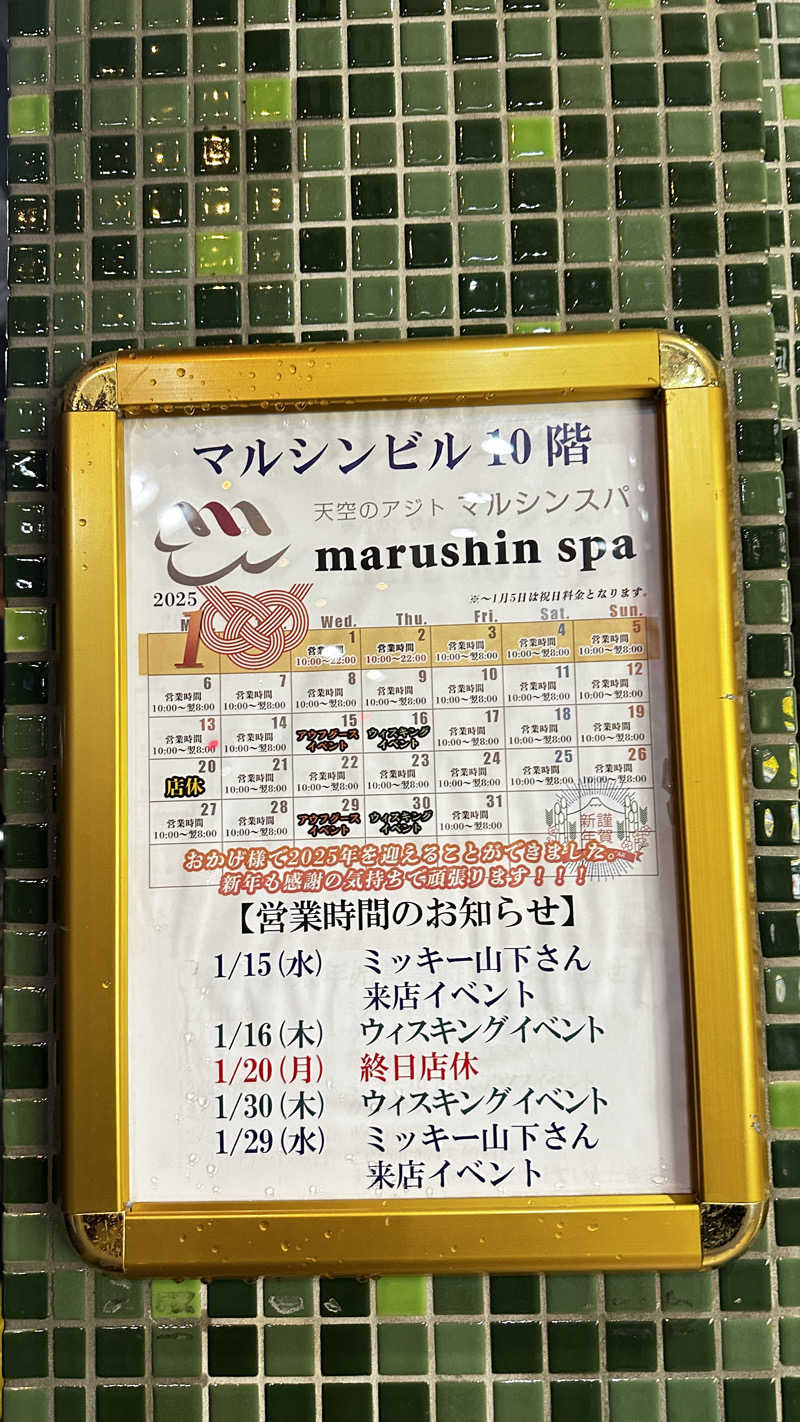 マルシンビル 10 階
天空のアジト マルシンスパ
marushin spa
2025
※～1月5日は祝日料金となります。
1
Wed. Thu. Fri. Sat. Sun.
1 2 3 4 5
営業時間 営業時間 営業時間 営業時間 営業時間
10:00～22:00 10:00～22:00 10:00～翌8:00 10:00～翌8:00 10:00～翌8:00
6 7 8 9 10 11 12
営業時間 営業時間 営業時間 営業時間 営業時間 営業時間 営業時間
10:00～翌8:00 10:00～翌8:00 10:00～翌8:00 10:00～翌8:00 10:00～翌8:00 10:00～翌8:00 10:00～翌8:00
13 14 15 16 17 18 19
営業時間 営業時間 アウフグース ウィスキング 営業時間 営業時間 営業時間
10:00～翌8:00 10:00～翌8:00 イベント イベント 10:00～翌8:00 10:00～翌8:00 10:00～翌8:00
20 21 22 23 24 25 26
店休 営業時間 営業時間 営業時間 営業時間 営業時間 営業時間
10:00～翌8:00 10:00～翌8:00 10:00～翌8:00 10:00～翌8:00 10:00～翌8:00 10:00～翌8:00
27 28 29 30 31
営業時間 営業時間 アウフグース ウィスキング 営業時間
10:00～翌8:00 10:00～翌8:00 イベント イベント 10:00～翌8:00
新謹
年賀
おかげ様で2025年を迎えることができました。
新年も感謝の気持ちで頑張ります！！！
【営業時間のお知らせ】
1/15(水) ミッキー山下さん
来店イベント
1/16(木) ウィスキングイベント
1/20(月) 終日店休
1/30(木) ウィスキングイベント
1/29(水) ミッキー山下さん
来店イベント